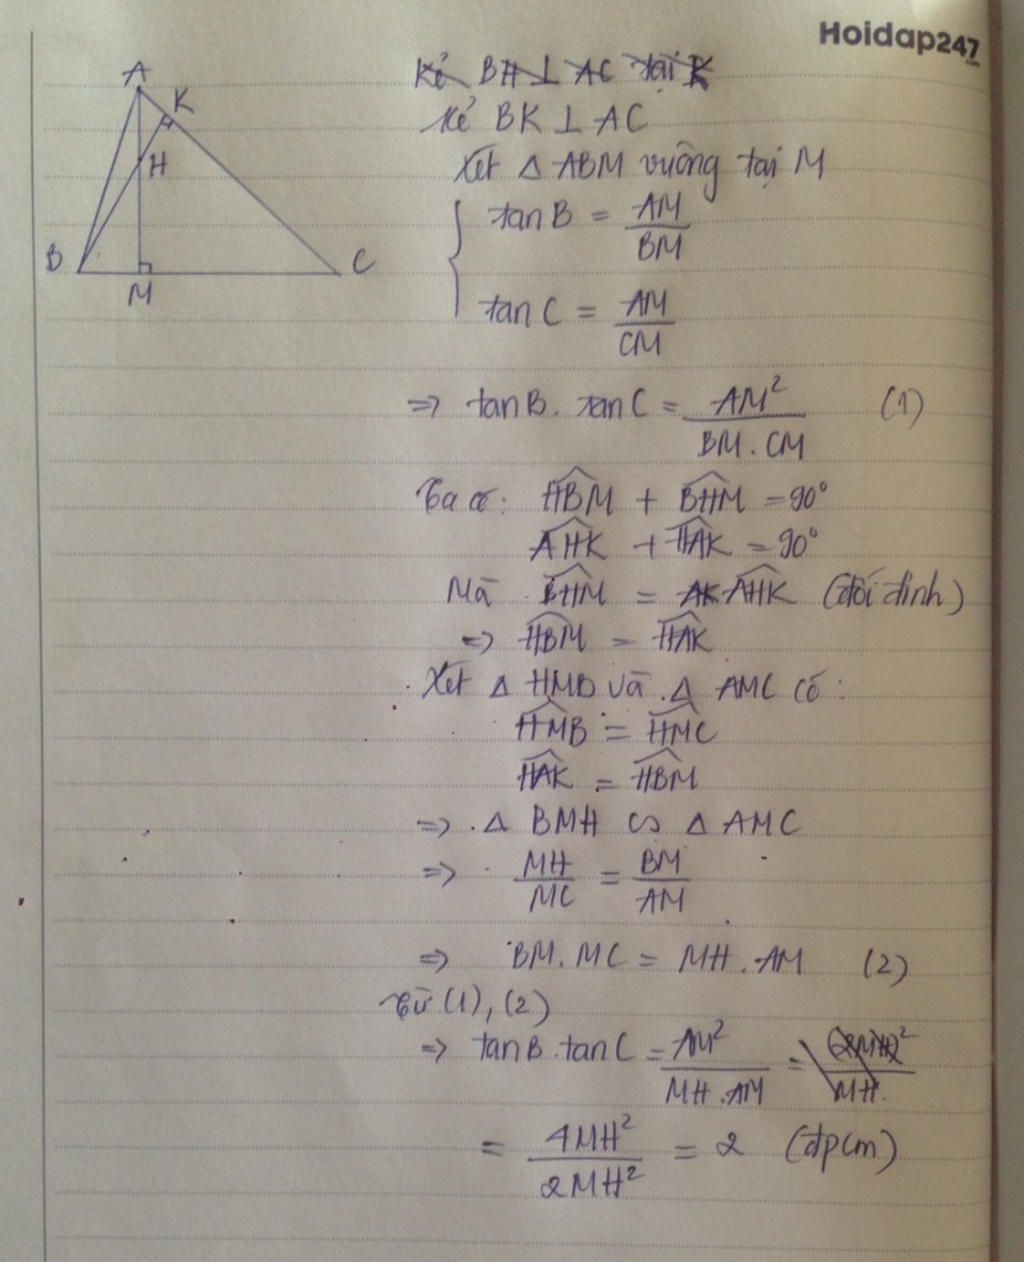 Hoidap247.com
Kẻ BH ⊥ AC tại K
Kẻ BK ⊥ AC
Xét Δ ABM vuông tại M
A
K
H
B
C
M
tan B = AM / BM
tan C = AM / CM
=> tan B . tan C = AM² / BM . CM (1)
Ta có: HBM + BHM = 90°
AHK + HAK = 90°
Mà BHM = AK AHK (đối đỉnh)
=> HBM = HAK
Xét Δ HMB và Δ AMC có :
HMB = HMC
HAK = HBM
=> Δ BMH ∽ Δ AMC
=> MH / MC = BM / AM
=> BM . MC = MH . AM (2)
Từ (1), (2)
=> tan B . tan C = AM² / MH . AM = (2MH)² / MH .
= 4MH² / 2MH² = 2 (đpcm)